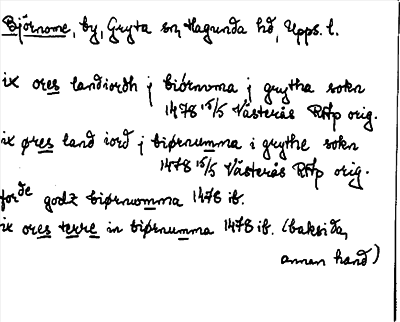 Björnome, by, Gryta sn, Hagunda hd, Upps. l.
ix ores landiordh j biórnoma j grytha sokn
1478 15/5 Västerås RAp orig.
ix øres land iord j biørnumma i grythe sokn
1478 15/5 Västerås RAp orig.
forde godz biørnomma 1478 ib.
ix ores terre in biørnumma 1478 ib. (baksida,
annan hand)